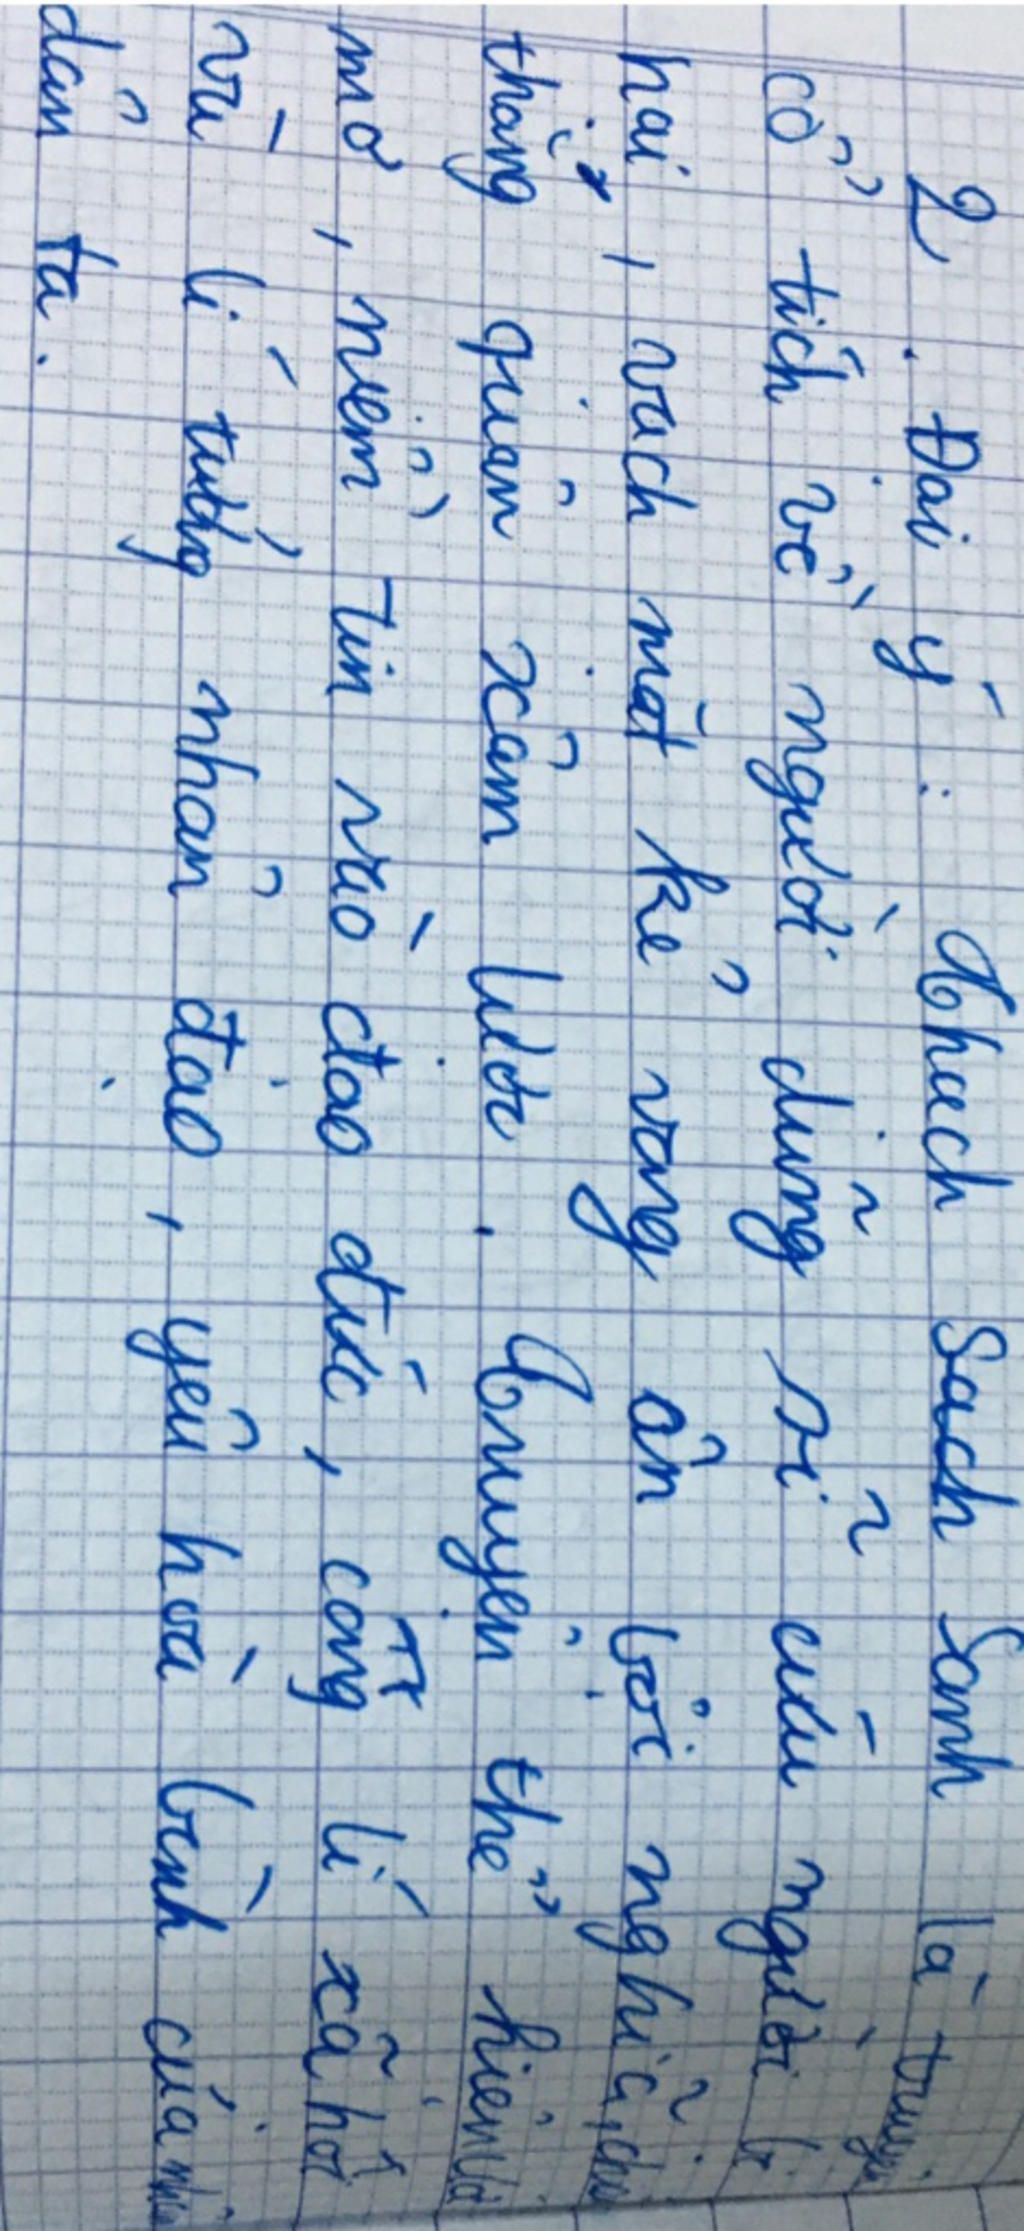 2. Đại ý: Thạch Sach Sanh là truyện
cổ tích về người dũng sĩ cứu người bị
hại, vạch mặt kẻ vong ân bội nghĩa, chiến
thắng quân xâm lược. Truyện thể hiện ước
mơ, niềm tin vào đạo đức, công lí xã hội
và lí tưởng nhân đạo, yêu hoà bình của nhân
dân ta.